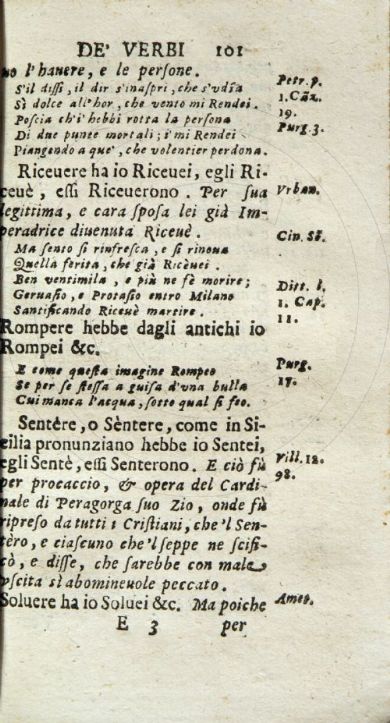 DE' VERBI 101
no l'hauere, e le persone.
S'il dissi, il dir s'inaspri, che s'vdia Petr. p.
Sì dolce all'hor, che vento mi Rendei. 1. Cãz.
Poscia ch'i' hebbi rotta la persona 19.
Di due punte mortali; i' mi Rendei Purg. 3.
Piangendo a que', che volentier perdona.
Riceuere ha io Riceuei, egli Ri-
ceuè, essi Riceuerono. Per sua Vrban.
legittima, e cara sposa lei già Im-
peradrice diuenuta Riceuè. Cin. Sõ.
Ma sento si rinfresca, e si rinoua
Quella ferita, che già Ricèuei.
Ben ventimila, e più ne fè morire; Ditt. l.
Geruasio, e Protasio entro Milano 1. Cap.
Santificando Riceuè martire. 11.
Rompere hebbe dagli antichi io
Rompei &c.
E come questa imagine Rompeo Purg.
Se per se stessa a guisa d'vna bulla 17.
Cui manca l'acqua, sotto qual si feo.
Sentère, o Sèntere, come in Si-
cilia pronunziano hebbe io Sentei,
egli Sentè, essi Senterono. E ciò fù Vill. 12.
per procaccio, & opera del Cardi- 98.
nale di Peragorga suo Zio, onde fù
ripreso da tutti i Cristiani, che 'l Sen-
tèro, e ciascuno che 'l seppe ne scifi-
cò, e disse, che sarebbe con male
vscita sì abomineuole peccato.
Soluere ha io Soluei &c. Ma poiche Amet.
E 3 per